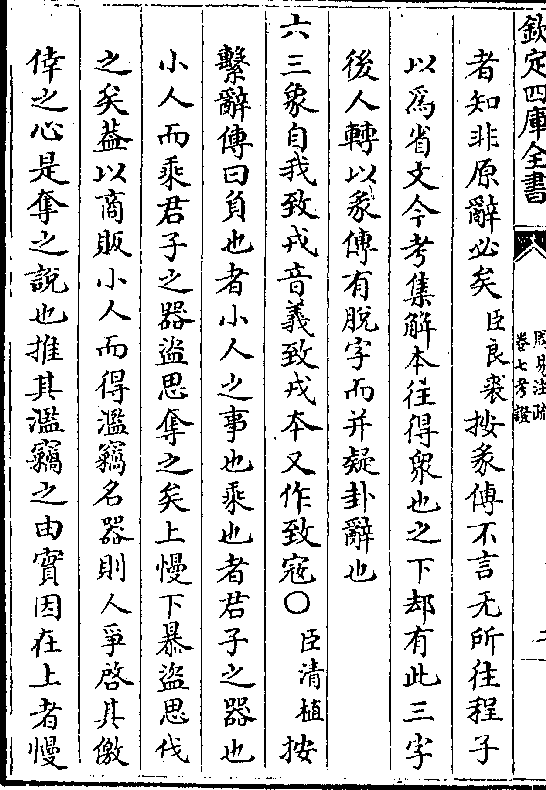 欽定四庫全書
周易注疏
卷七考證
二
者知非原辭必矣臣良裘按彖傳不言无所往程子
以為省文今考集解本往得衆也之下却有此三字
後人轉以彖傳有脱字而并疑卦辭也
六三象自我致戎音義致戎本又作致寇○臣清植按
繫辭傳曰負也者小人之事也乘也者君子之器也
小人而乘君子之器盜思奪之矣上慢下暴盜思伐
之矣葢以商販小人而得濫竊名器則人爭啓其儌
倖之心是奪之說也推其濫竊之由實因在上者慢